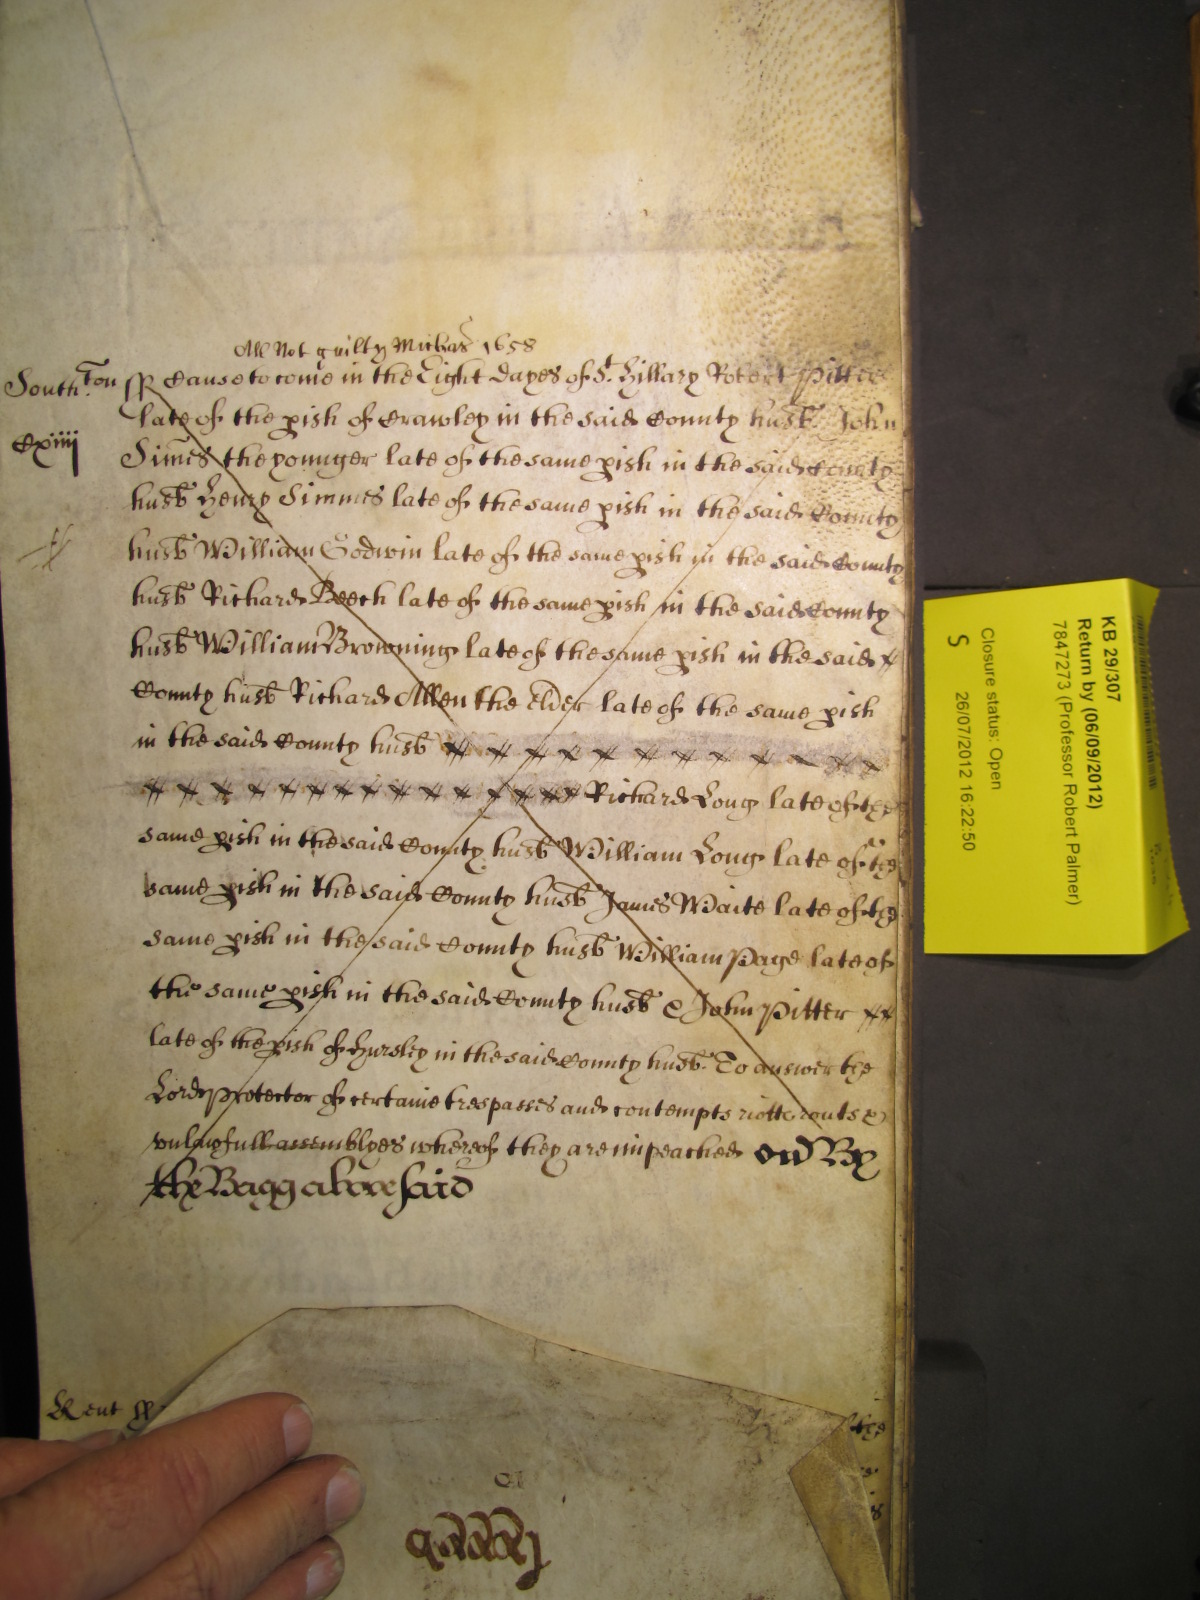 All Not guilty Michas 1658
South.ton ss Cause to come in the Eight dayes of St. Hillary Robert Pitter
late of the pish of Crawley in the said County husb. John
Cxiiij
Simes the younger late of the same pish in the said County
husb Henry Simmes late of the same pish in the said County
husb William Godwin late of the same pish in the said County
husb Richard Beech late of the same pish in the said County
husb William Browning late of the same pish in the said
County husb Richard Allen the elder late of the same pish
in the said County husb
Richard Long late of the
same pish in the said County husb William Long late of the
same pish in the said County husb James Waite late of the
same pish in the said County husb William Page late of
the same pish in the said County husb & John Pitter
late of the pish of Hursley in the said County husb. To answer the
Lord Protector of certaine trespasses and contempts riotts routs &
unlawfull assemblyes whereof they are impeached By
the Bagg abovesaid
Kent ss
the
KB 29/307
Return by (06/09/2012)
7847273 (Professor Robert Palmer)
Closure status: Open
S 26/07/2012 16:22:50